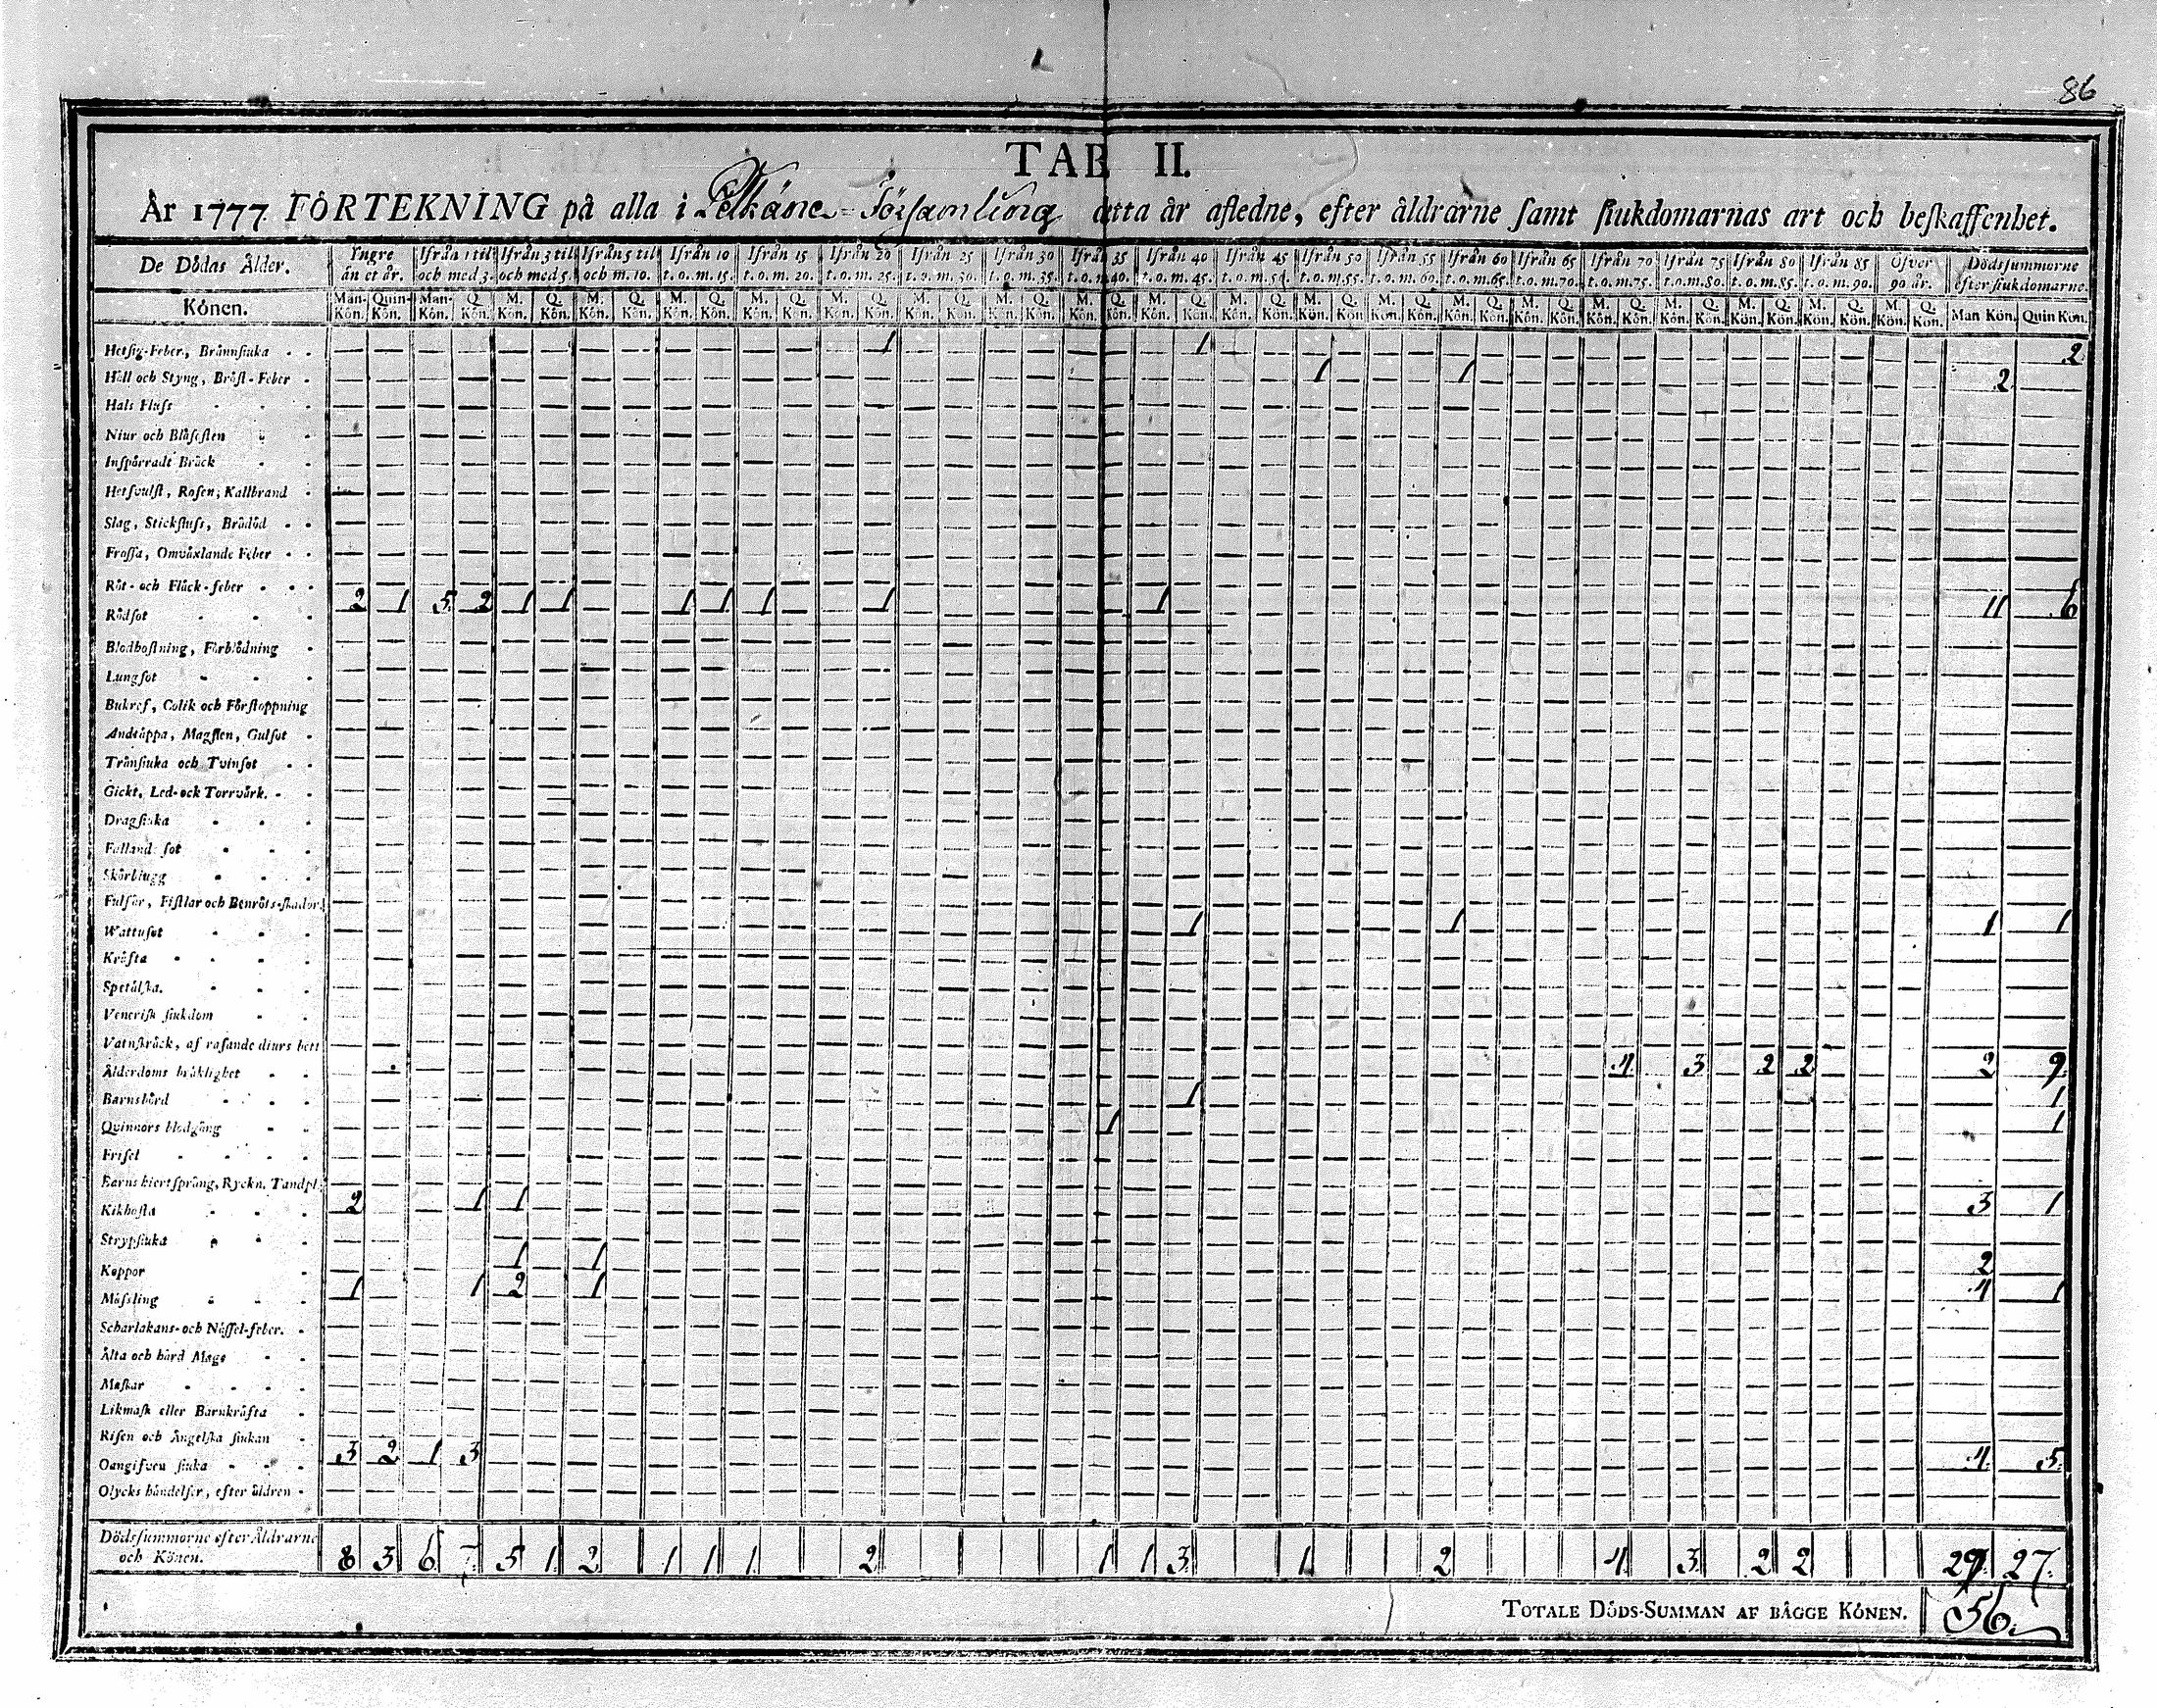 86
TAB II.
År 1777 FÖRTEKNING på alla i Pelkäne Församling detta år afledne, efter åldrarne samt siukdomarnas art och beskaffenhet.
De Dödas Ålder. Yngre än et år. Ifrån 1 til och med 3. Ifrån 3 til och med 5. Ifrån 5 til och m. 10. Ifrån 10 t. o. m. 15. Ifrån 15 t. o. m. 20. Ifrån 20 t. o. m. 25. Ifrån 25 t. o. m. 30. Ifrån 30 t. o. m. 35. Ifrån 35 t. o. m. 40. Ifrån 40 t. o. m. 45. Ifrån 45 t. o. m. 50. Ifrån 50 t. o. m. 55. Ifrån 55 t. o. m. 60. Ifrån 60 t. o. m. 65. Ifrån 65 t. o. m. 70. Ifrån 70 t. o. m. 75. Ifrån 75 t. o. m. 80. Ifrån 80 t. o. m. 85. Ifrån 85 t. o. m. 90. Öfver 90 år. Dödssummorne efter siukdomarne.
Könen. Man-Kön. Quin-Kön. Man-Kön. Q. Kön. M. Kön. Q. Kön. M. Kön. Q. Kön. M. Kön. Q. Kön. M. Kön. Q. Kön. M. Kön. Q. Kön. M. Kön. Q. Kön. M. Kön. Q. Kön. M. Kön. Q. Kön. M. Kön. Q. Kön. M. Kön. Q. Kön. M. Kön. Q. Kön. M. Kön. Q. Kön. M. Kön. Q. Kön. M. Kön. Q. Kön. M. Kön. Q. Kön. M. Kön. Q. Kön. M. Kön. Q. Kön. M. Kön. Q. Kön. M. Kön. Q. Kön. Man Kön. Quin Kön.
Hetsig-Feber, Brännsiuka 1 1 2
Håll och Styng, Bröst-Feber 1 1 2
Hals Fluss
Niur och Blåsesten
Inspärradt Bråck
Hetsvulst, Rosen, Kallbrand
Slag, Stickfluss, Brådöd
Frossa, Omväxlande Feber
Röt- och Fläck-feber
Rödsot 2 1 5 2 1 1 1 1 1 1 1 11 6
Blodhostning, Förblödning
Lungsot
Bukref, Colik och Förstoppning
Andtäppa, Magsten, Gulsot
Trånsiuka och Tvinsot
Gickt, Led- ock Torrvärk.
Dragsiuka
Fallande sot
Skörbiugg
Fulsår, Fistlar och Benröts-skador
Wattusot 1 1 1 1
Kräfta
Spetälska.
Venerisk siukdom
Vatnskräck, af rasande diurs bett
Ålderdoms bräklighet 4 3 2 2 2 9
Barnsbörd 1 1
Quinnors blodgång 1 1
Frisel
Barns hiertsprång, Ryckn. Tandpl.
Kikhosta 2 1 1 3 1
Strypsiuka
Koppor 1 1 2
Mässling 1 1 2 1 4 1
Scharlakans- och Nässel-feber.
Älta och hård Mage
Maskar
Likmask eller Barnkräfta
Risen och Ängelska siukan
Oangifven siuka 3 2 1 3 4 5
Olycks händelser, efter åldren
Dödssummorne efter Åldrarne och Könen. 8 3 6 7 5 1 2 1 1 1 2 1 1 3 1 2 4 3 2 2 29 27
TOTALE DÖDS-SUMMAN AF BÄGGE KÖNEN. 56.